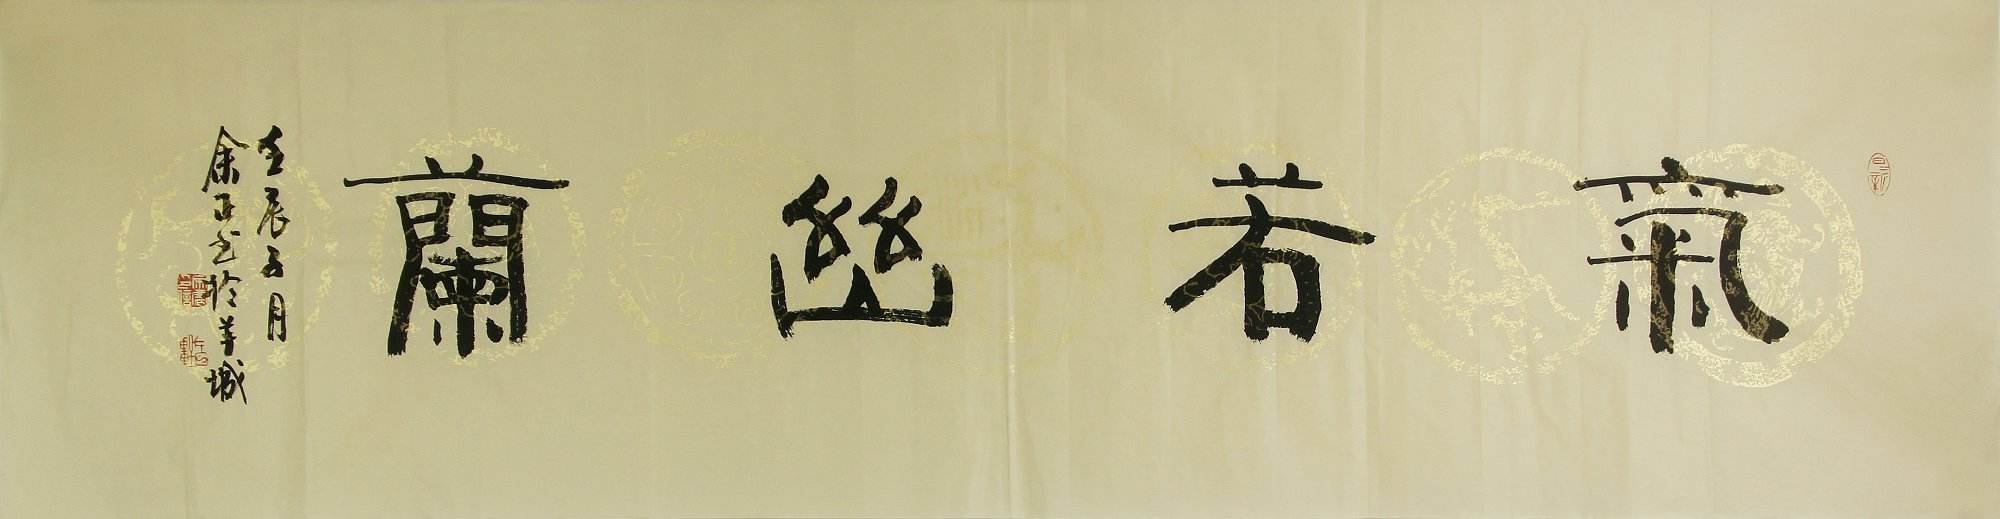 氣若幽蘭
壬辰五月
余正书於羊城